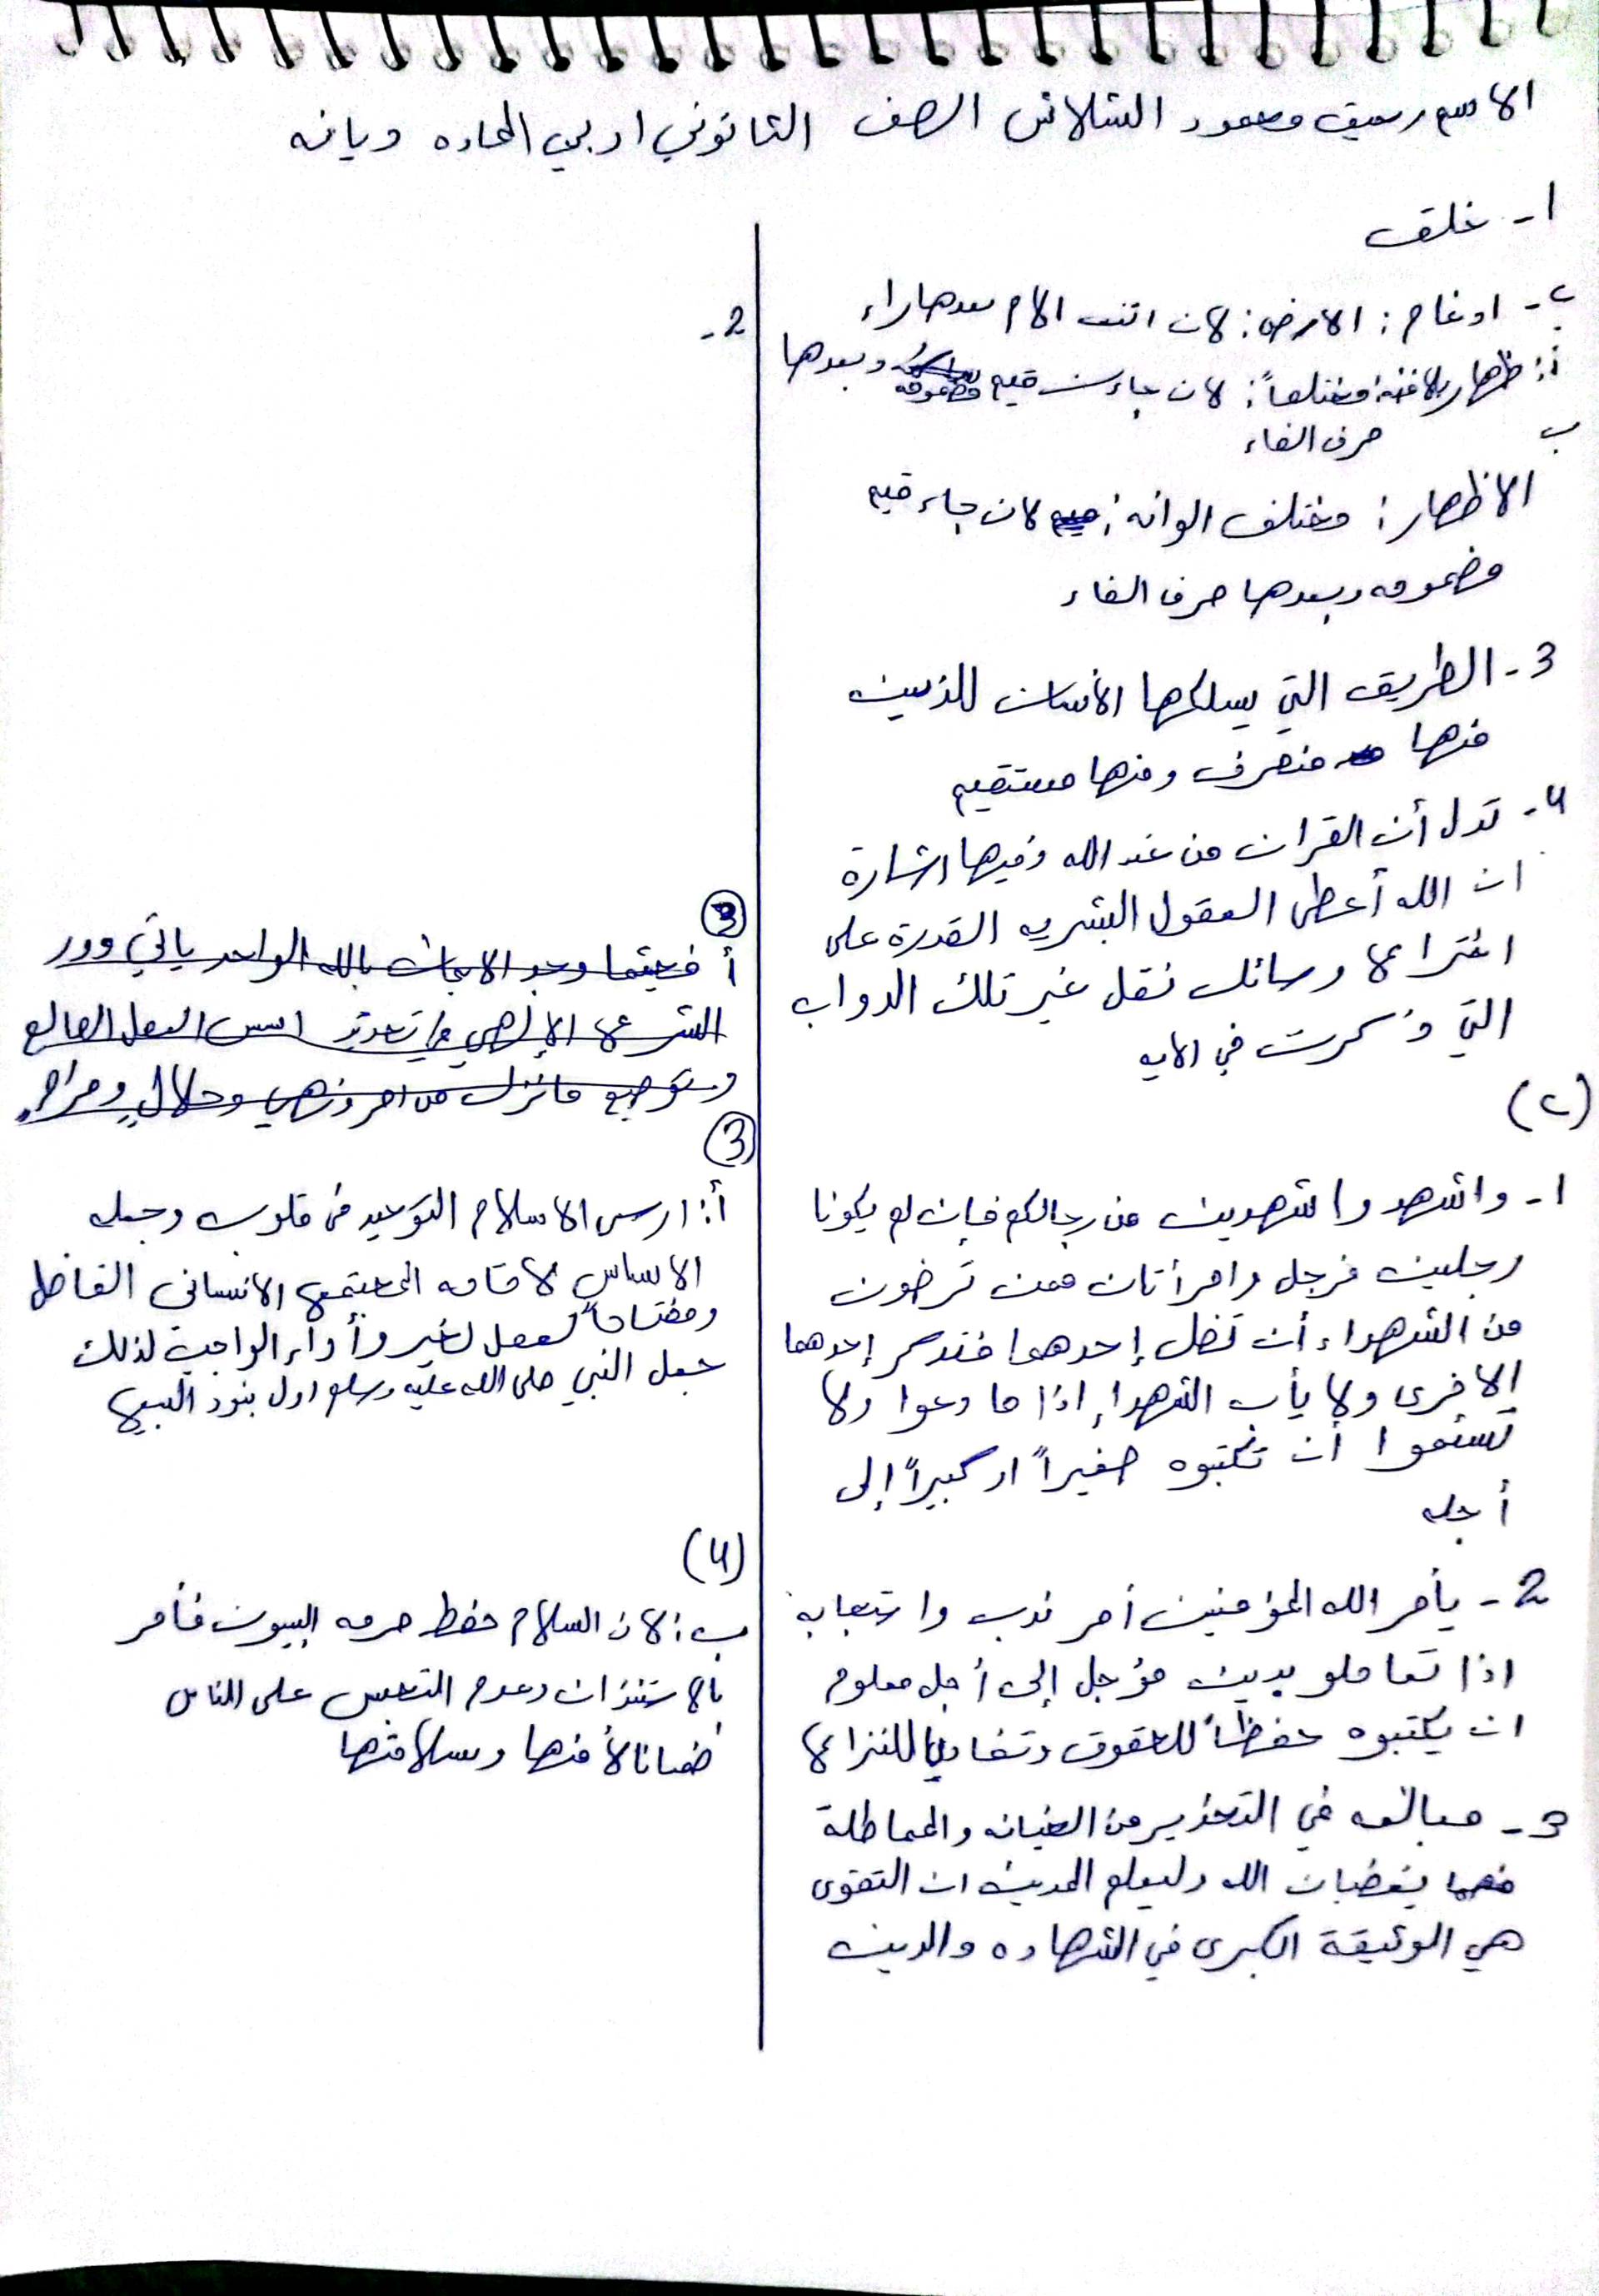 الاسم رسيق مسعود الشلاش الصف الثانوني ادبي المحاده ديانه
1- خلق
ب- ادغام : الارض : لان اتت الام بعدها راء
أ: ظهار بلا غنه : مختلفاً : لان جاءت ميم مضمومه وبعدها
ب حرف الفاء
الاظهار : مختلف الوانه : لان جاء ميم
مضمومه وبعدها حرف الفاء
3- الطريق التي يسلكها الأنسان للذين
منها منحرف ومنها مستقيم
4- تدل أن القران من عند الله وفيها اشارة
ان الله أعطى العقول البشريه القدرة على
اختراع وسائل نقل غير تلك الدواب
التي ذكرت في الايه
(2)
1- واشهدوا شهدين من رجالكم فإن لم يكونا
رجلين فرجل وامرأتان ممن ترضون
من الشهداء أن تضل إحدهما فتدكر إحدهما
الاخرى ولا يأب الشهداء إذا ما دعوا ولا
تسئموا ان تكتبوه صغيراً او كبيراً إلى
أجله
2- يأمر الله المؤمنين أمر ندب واستجابه
اذا تعاملو بدين مؤجل إلى أجل معلوم
ان يكتبوه حفظاً للحقوق وتفاديا للنزاع
3- مبالغه في التحذير من الخيانه والمماطلة
يغضبان الله وليعلم المدين ان التقوى
هي الوثيقة الكبرى في الشهاده والدين
2-
(3)
أ فحيثما وجد الايمان بالله الواحد ياتي دور
الشرع الإلهي في تحديد اسس العمل الصالح
وتوضيح ما نزل من امر ونهي وحلالٍ وحرام.
(3)
أ: ارسى الاسلام التوحيد في قلوب وجعله
الاساس لاقامه المجتمع الانساني الفاضل
ومفتاحاً لعمل لخير وأداء الواجب لذلك
جعل النبي صلى الله عليه وسلم اول بنود البيع
(4)
ب: لان السلام حفظ حرمه البيوت فأمر
بالاستئذان وعدم التجسس على الناس
ضمانا لأمنها وسلامتها